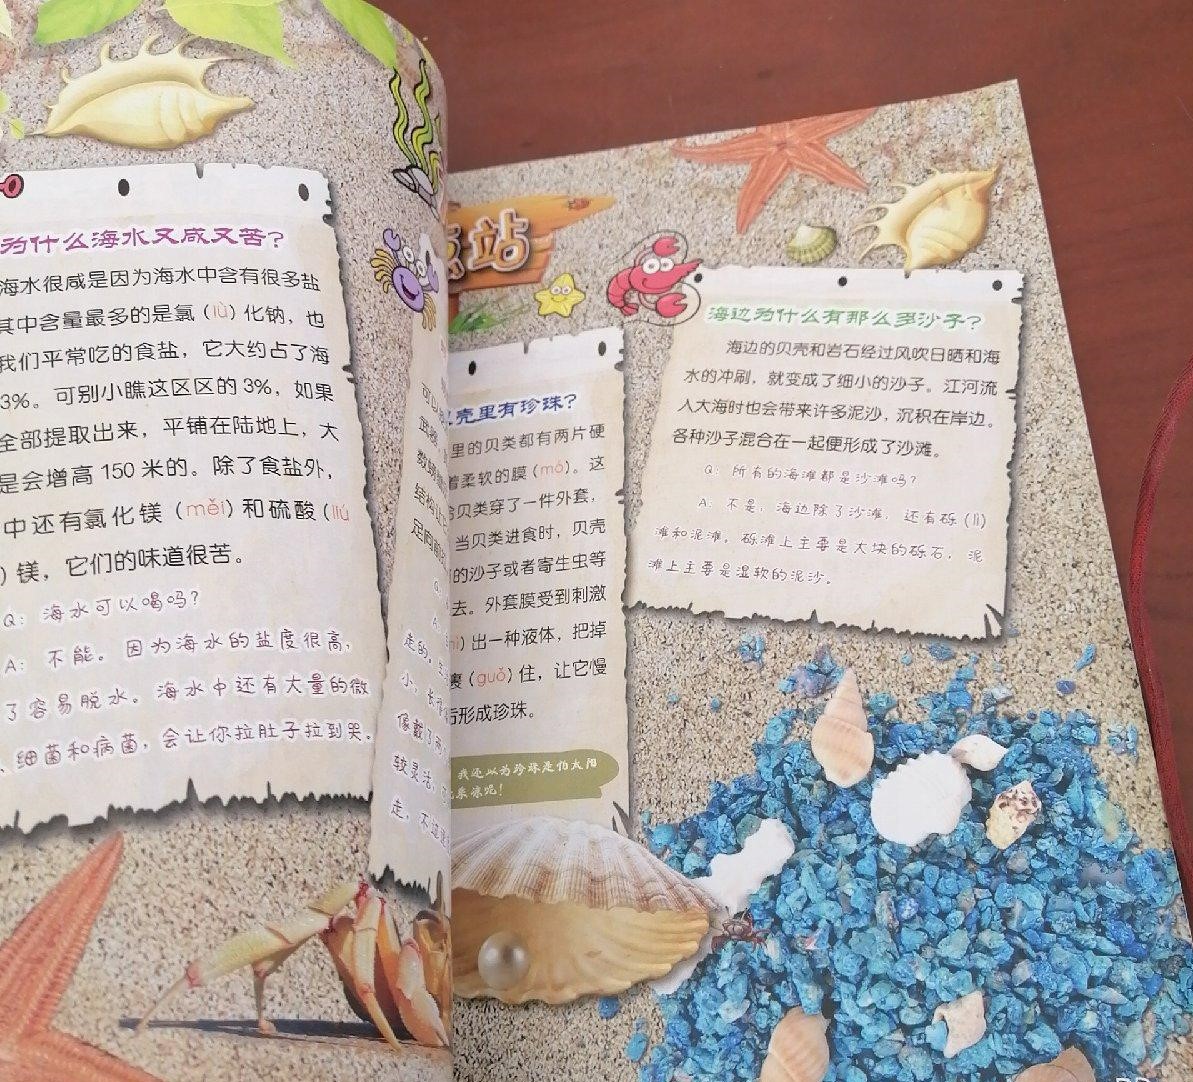 为什么海水又咸又苦?
海水很咸是因为海水中含有很多盐
其中含量最多的是氯(lǜ)化钠，也
我们平常吃的食盐，它大约占了海
3%。可别小瞧这区区的3%，如果
全部提取出来，平铺在陆地上，大
是会增高150米的。除了食盐外，
中还有氯化镁(měi)和硫酸(liú
)镁，它们的味道很苦。
Q: 海水可以喝吗?
A: 不能。因为海水的盐度很高，
了容易脱水。海水中还有大量的微
、细菌和病菌，会让你拉肚子拉到哭。
可以
走的，
小，长
像戴了
较灵活，
走，不
站
壳里有珍珠?
里的贝类都有两片硬
着柔软的膜(mó)。这
给贝类穿了一件外套，
当贝类进食时，贝壳
的沙子或者寄生虫等
去。外套膜受到刺激
出一种液体，把掉
裹(guǒ)住，让它慢
后形成珍珠。
我还以为珍珠是怕太阳
海边为什么有那么多沙子?
海边的贝壳和岩石经过风吹日晒和海
水的冲刷，就变成了细小的沙子。江河流
入大海时也会带来许多泥沙，沉积在岸边。
各种沙子混合在一起便形成了沙滩。
Q: 所有的海滩都是沙滩吗?
A: 不是，海边除了沙滩，还有砾(lì)
滩和泥滩，砾滩上主要是大块的砾石，泥
滩上主要是湿软的泥沙。